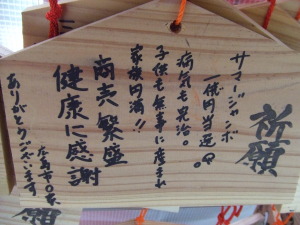 祈願
サマージャンボ
一億円当選
病気も完治。
子供も無事に産まれ
家族円満!!
商売繁盛
健康に感謝
ありがとうございます
広島市
願